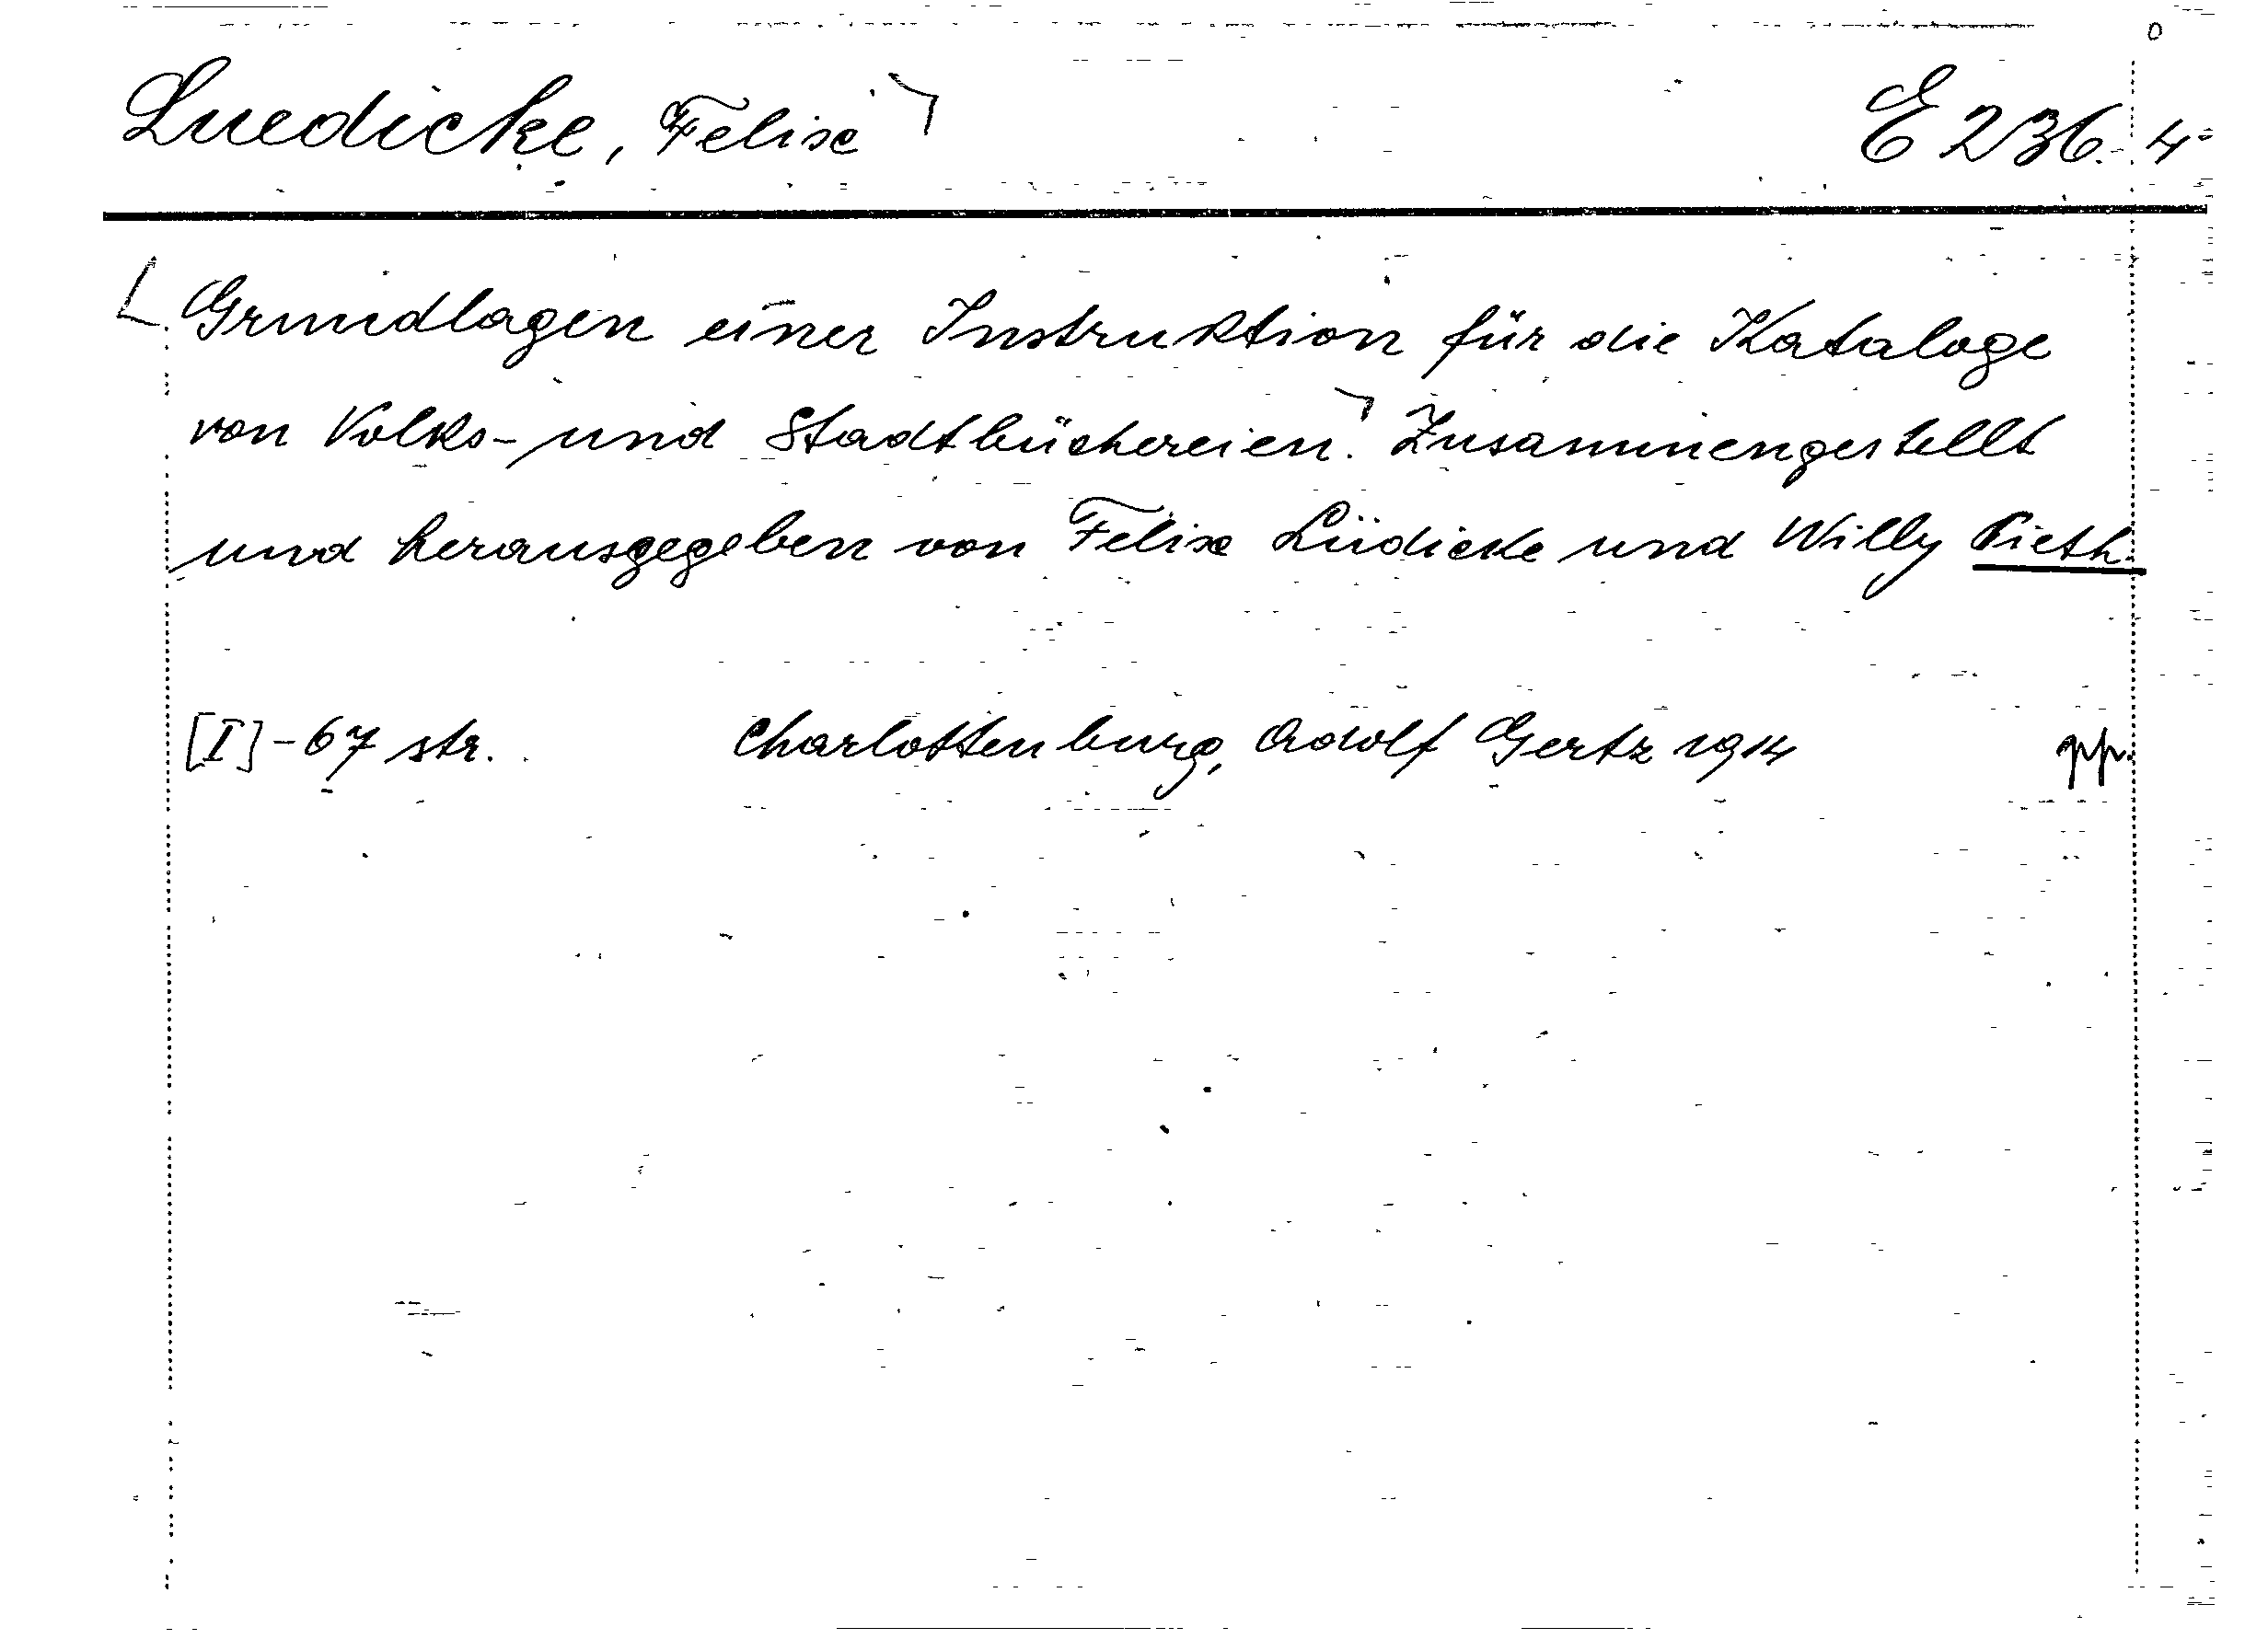 Luedicke, Felix E 236. 4°
Grundlagen einer Instruktion für die Kataloge
von Volks- und Stadtbüchereien. Zusammengestellt
und herausgegeben von Felix Lüdicke und Willy Pieth.
[I]-67 str. Charlottenburg, Adolf Gertz 1914 pp.